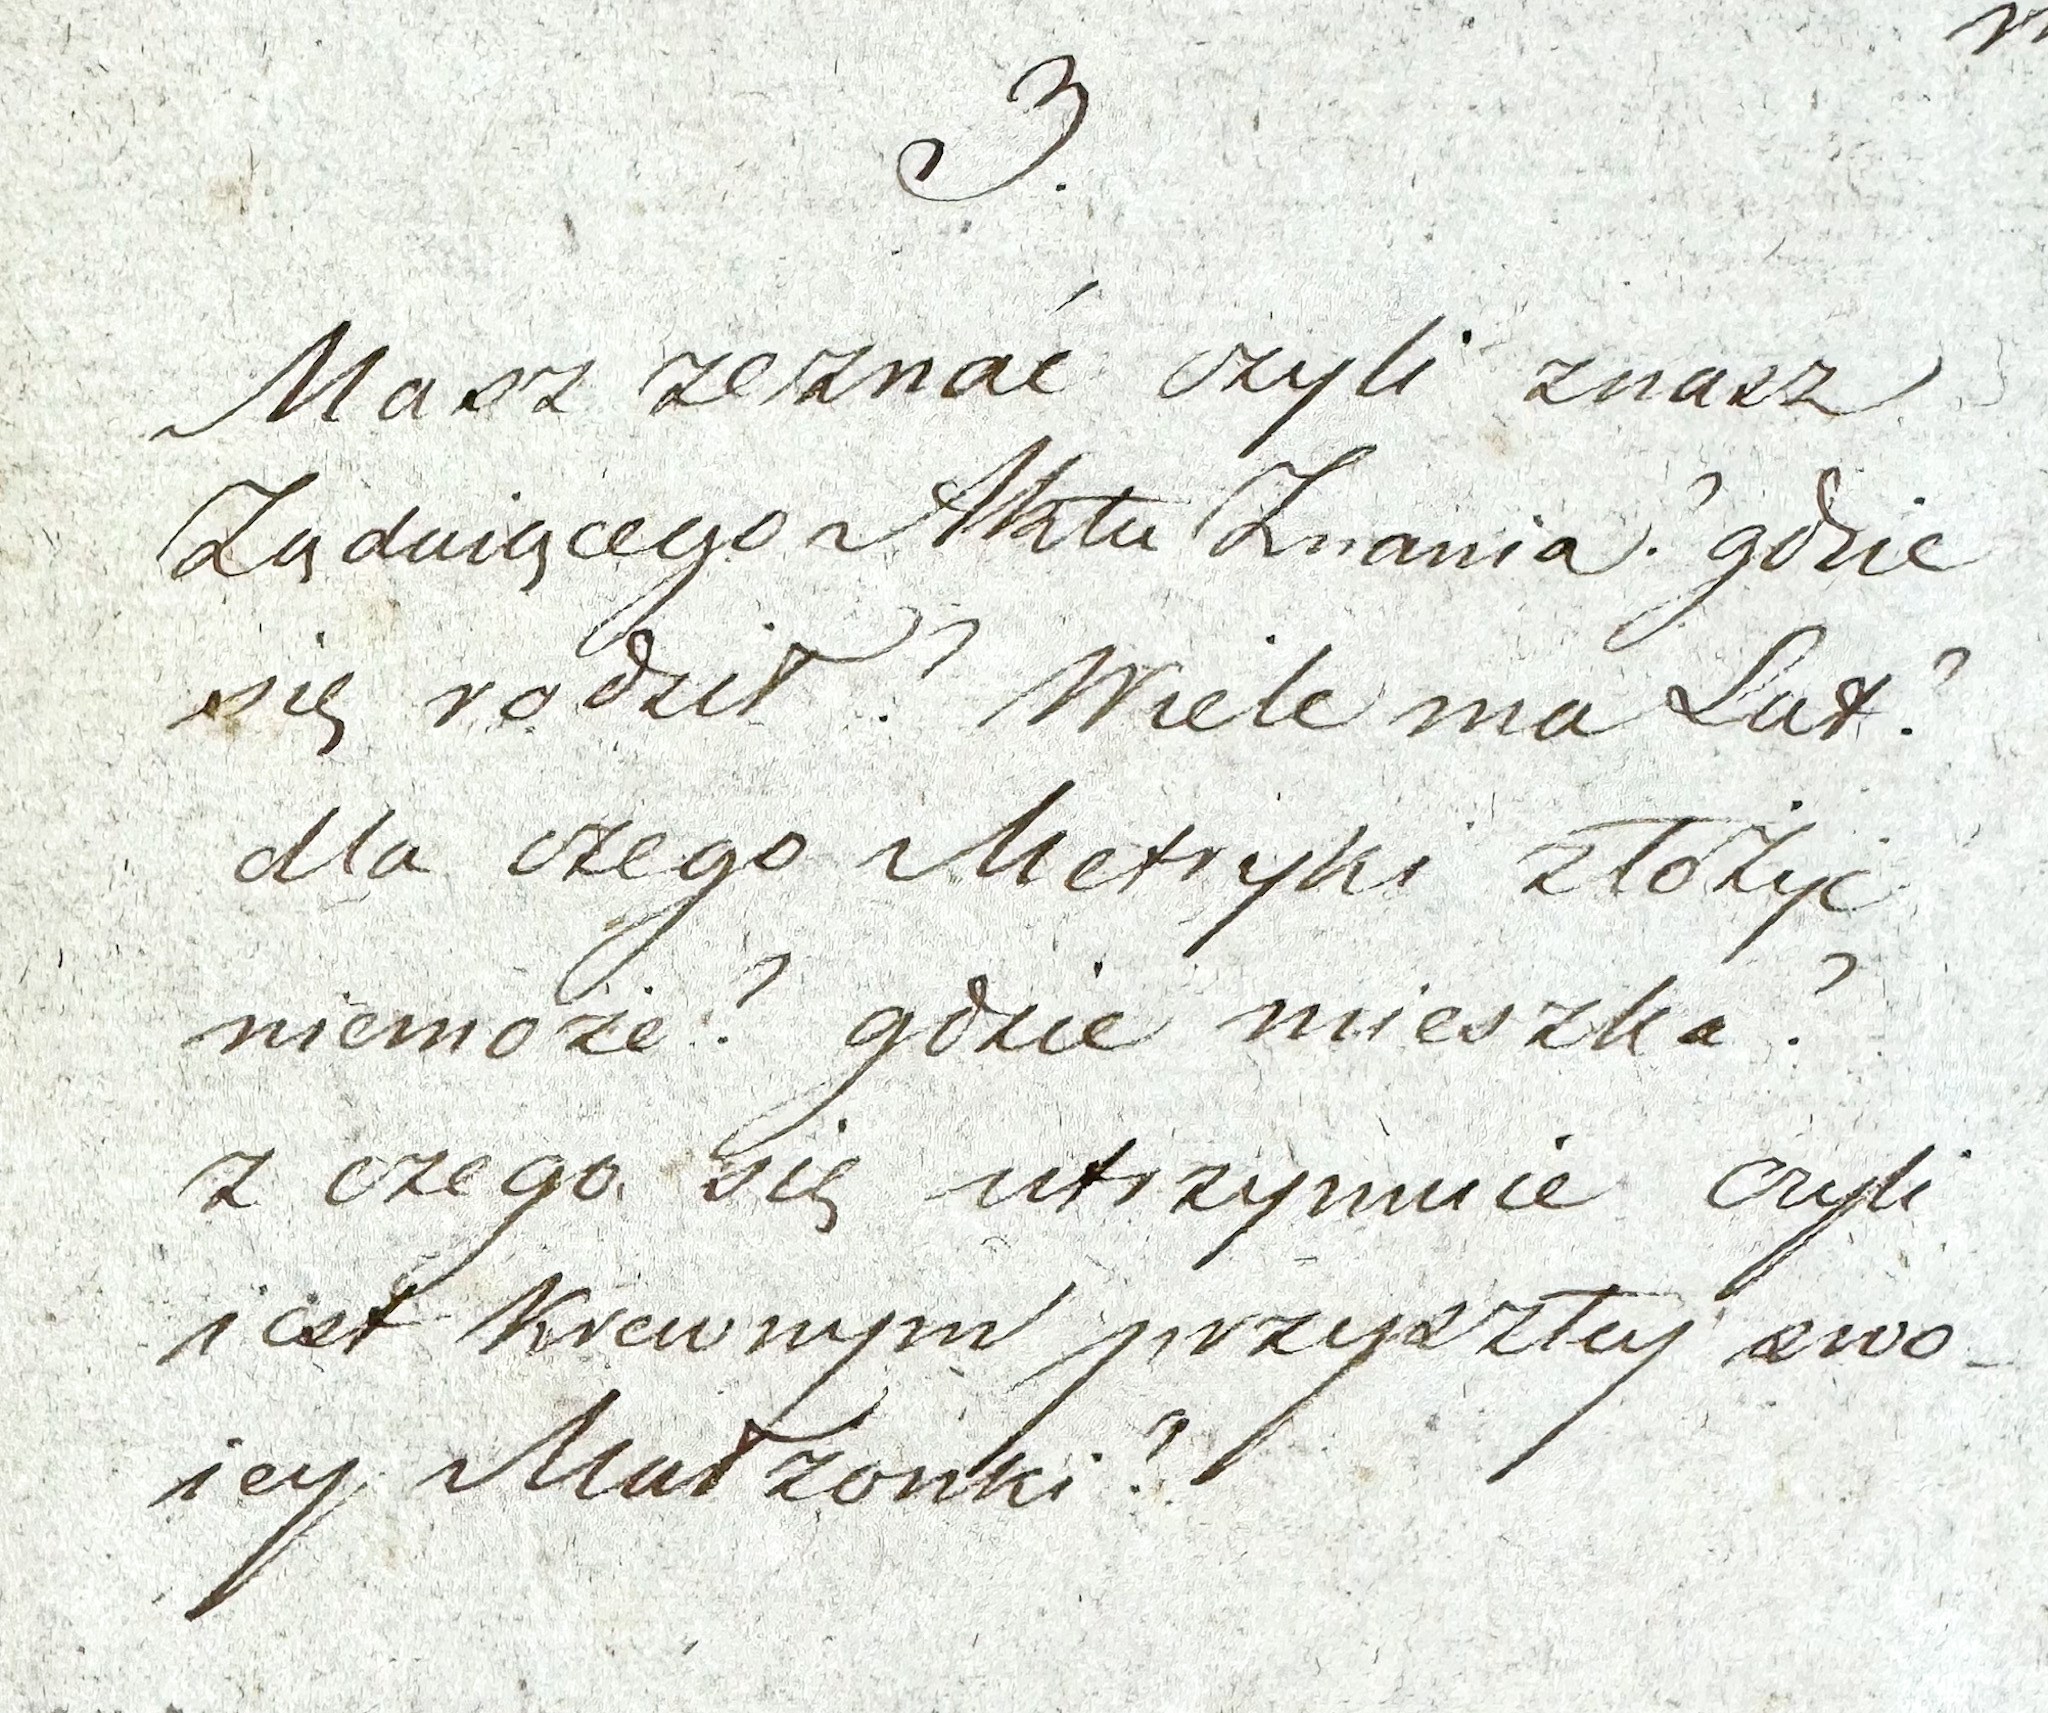 3.
Masz zeznać czyli znasz
Żądaiącego Aktu Znania? gdzie
się rodził? Wiele ma Lat?
dla czego Metryki złożyć
niemoże? gdzie mieszka?
z czego się utrzymuie czyli
iest Krewnym przyszłuj swo-
iey Małżonki?